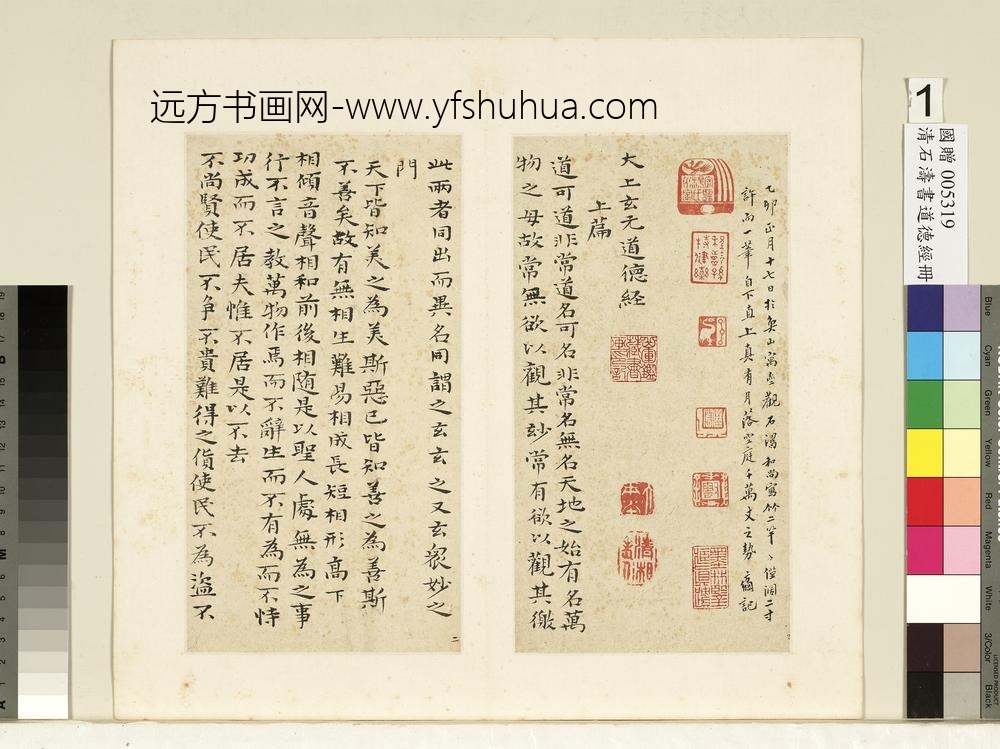 远方书画网-www.yfshuhua.com
1
國贈 005319
清石濤書道德經冊
乙卯正月十七日於
寓壺觀石濤和尚寫竹二竿
許而一筆自下直上真有月落空庭千萬丈之勢
記
大上玄元道德經
上篇
道可道非常道名可名非常名無名天地之始有名萬
物之母故常無欲以觀其妙常有欲以觀其徼
此兩者同出而異名同謂之玄玄之又玄衆妙之
門
天下皆知美之為美斯惡已皆知善之為善斯
不善矣故有無相生難易相成長短相形高下
相傾音聲相和前後相随是以聖人處無為之事
行不言之教萬物作焉而不辭生而不有為而不恃
功成而不居夫惟不居是以不去
不尚賢使民不争不貴難得之貨使民不為盜不
二
Blue
Cyan
Green
Yellow
Red
Magenta
White
3/Color
Black